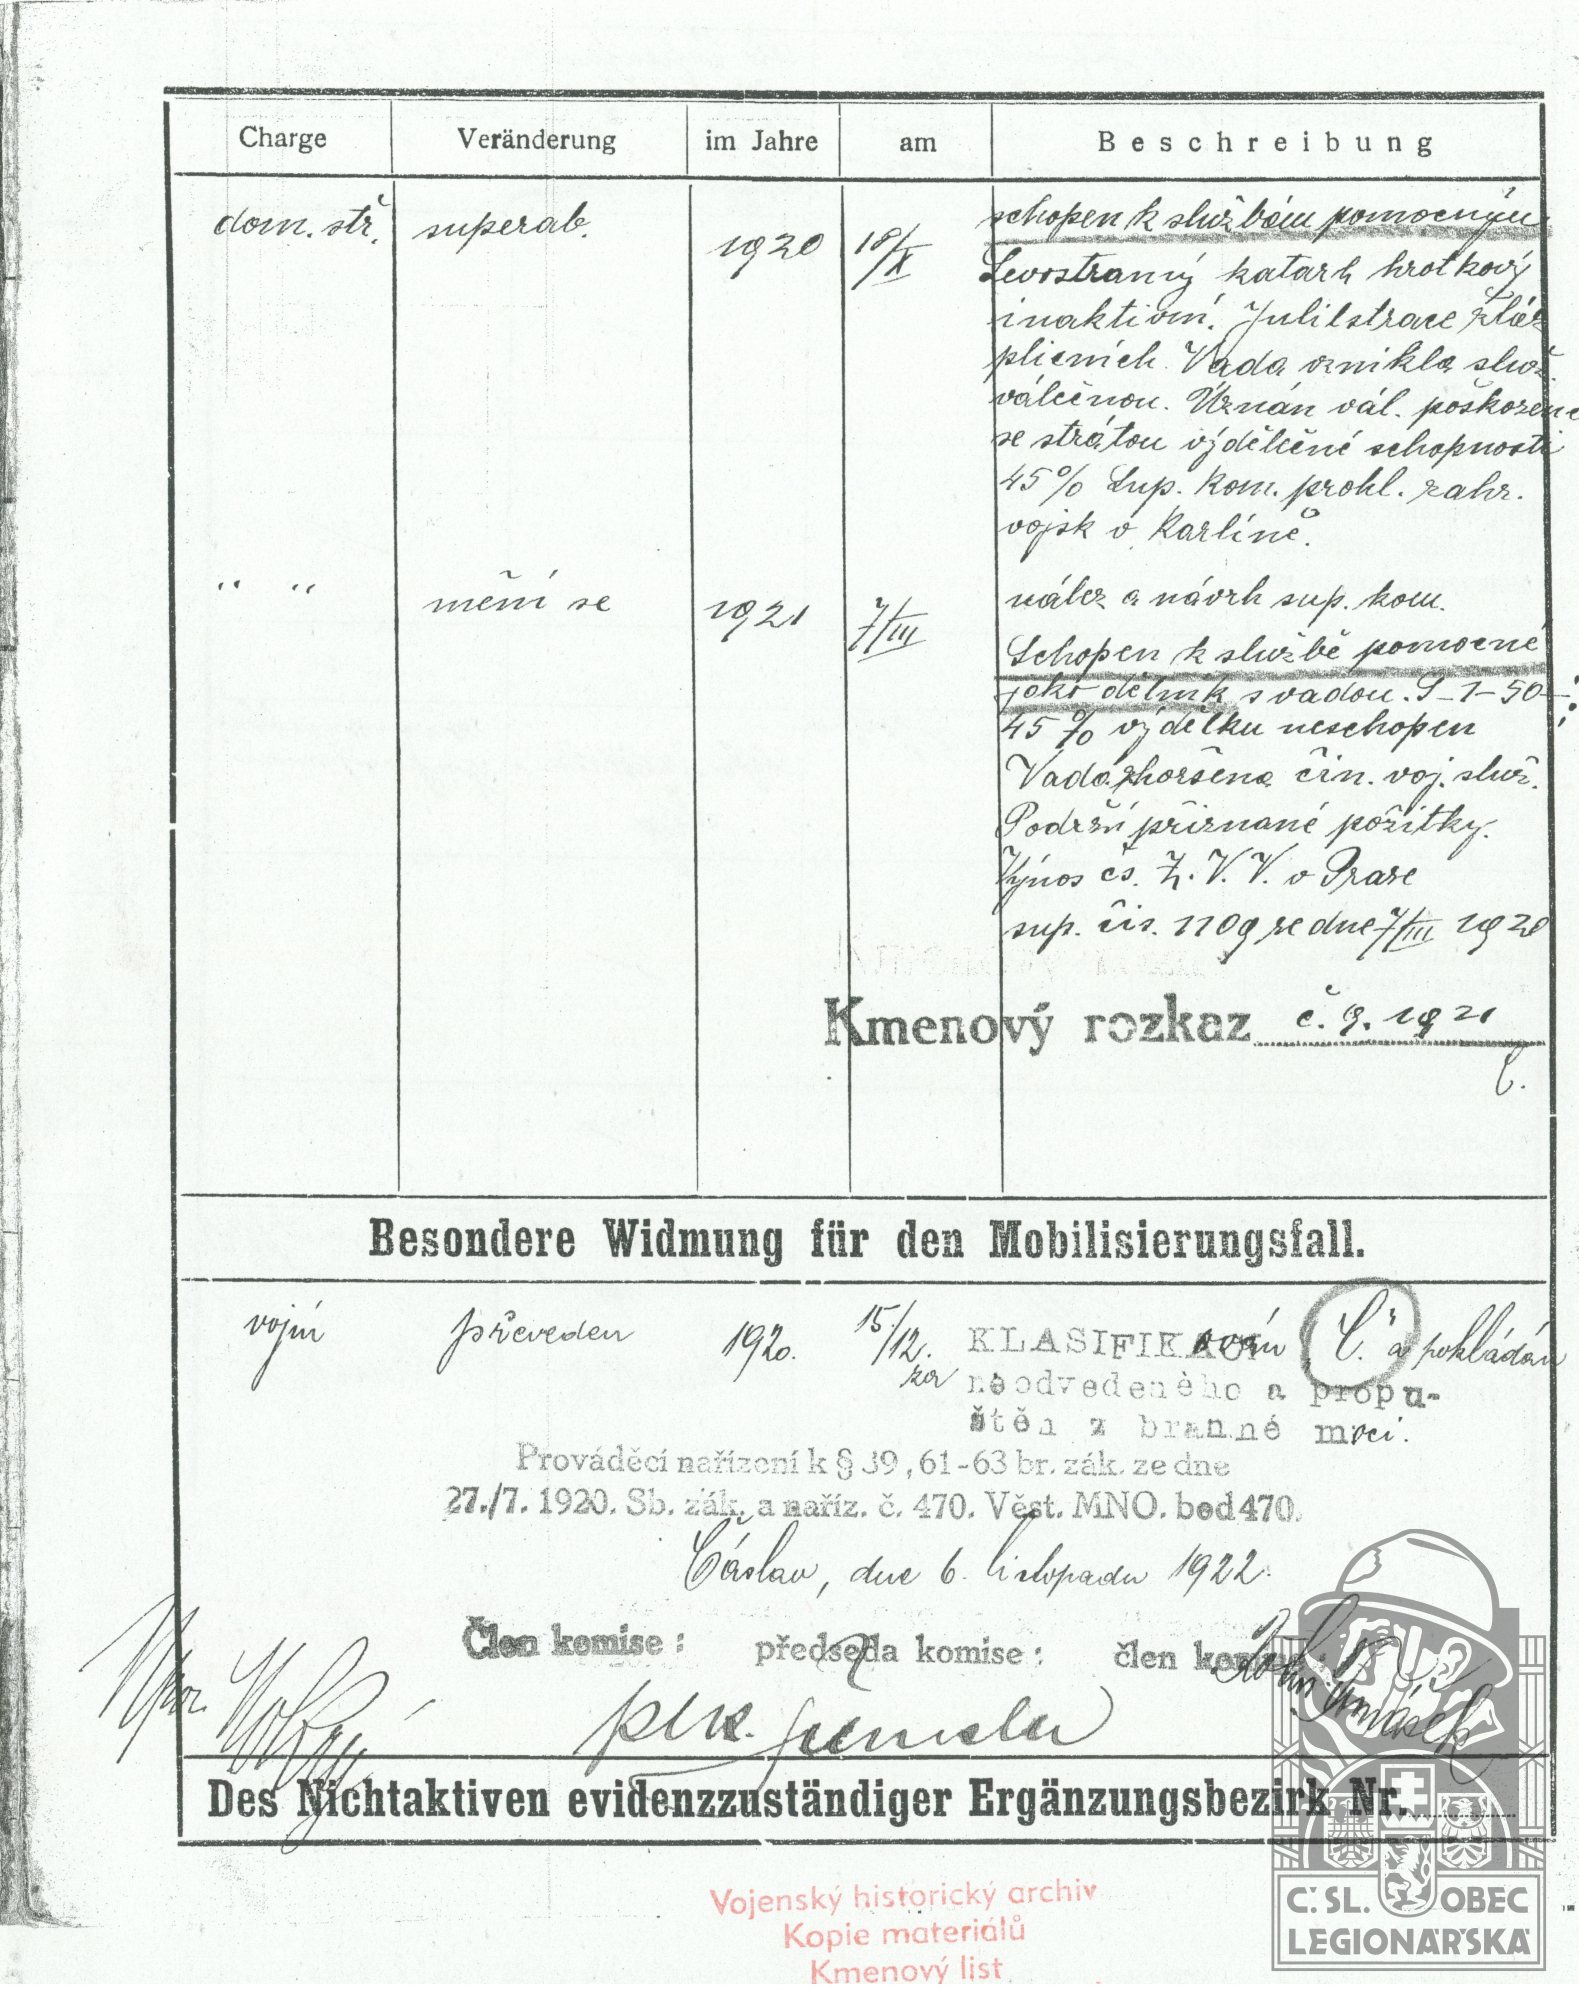 Charge Veränderung im Jahre am Beschreibung
dom. stř. superab. 1920 18/X schopen k službám pomocným
Levostranný katarh hrotkový
inaktivní. Infilstrace žláz
plicních. Vada vznikla služ.
válečnou. Uznán vál. poškozenc
se strátou výdělečné schopnosti
45% Sup. kom. prohl. zahr.
vojsk v Karlíně.
" " mění se 1921 7/III nález a návrh sup. kom.
Schopen k službě pomocné
jako dělník s vadou. S-1-50-
45% výdělku neschopen
Vada zhoršena čin. voj. služ.
Podrží přiznané požitky.
Výnos čs. Z. V. V. v Praze
sup. čís. 1109 ze dne 7/III 1920
Kmenový rozkaz č. 9. 1921
Besondere Widmung für den Mobilisierungsfall.
vojín převeden 1920. 15./12. KLASIFIKován „C." a pokládán
za neodvedeného a propu-
štěn z branné moci.
Prováděcí nařízení k § 39, 61-63 br. zák. ze dne
27./7. 1920. Sb. zák. a naříz. č. 470. Věst. MNO. bod 470.
Čáslav, dne 6. listopadu 1922.
Člen komise: předseda komise: člen komise:
plk.
Des Nichtaktiven evidenzzuständiger Ergänzungsbezirk Nr.
Vojenský historický archiv
Kopie materiálů
Kmenový list
Č. SL. OBEC
LEGIONÁŘSKÁ